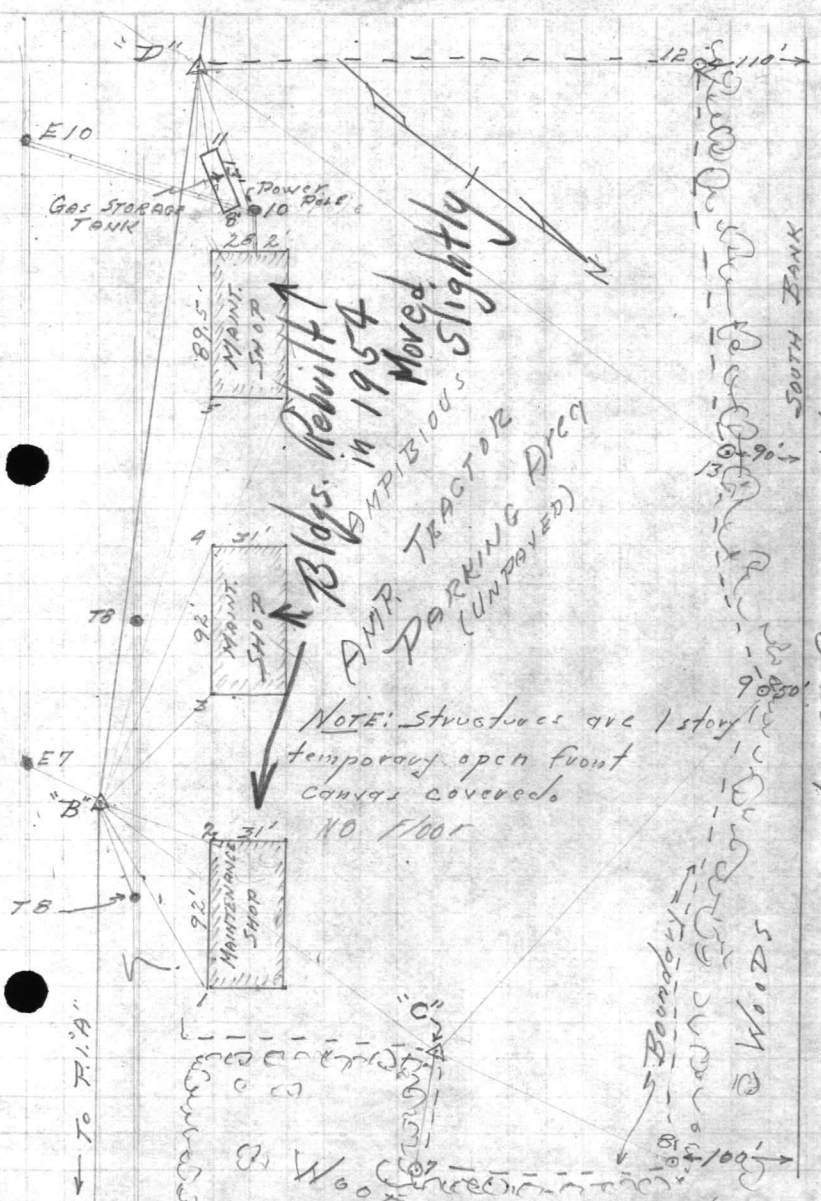 "D"
12
110'
E10
11
13'
GAS STORAGE
TANK
Power
Pole
10
N
2'
MAINT.
SHOP
89.5'
5
Bldgs. Rebuilt
in 1954
Moved
Slightly
AMPIBIOUS
AMP. TRACTOR
PARKING Area
(UNPAVED)
SOUTH BANK
13
90'
4
31'
MAINT.
SHOP
92'
3
T8
9
50'
NOTE: Structures are 1 story
temporary open front
canvas covered.
NO Floor
E7
"B"
2
31'
MAINTENANCE
SHOP
92'
1
T8
"C"
Boundary
WOODS
To P.I. "A"
7
8
100'